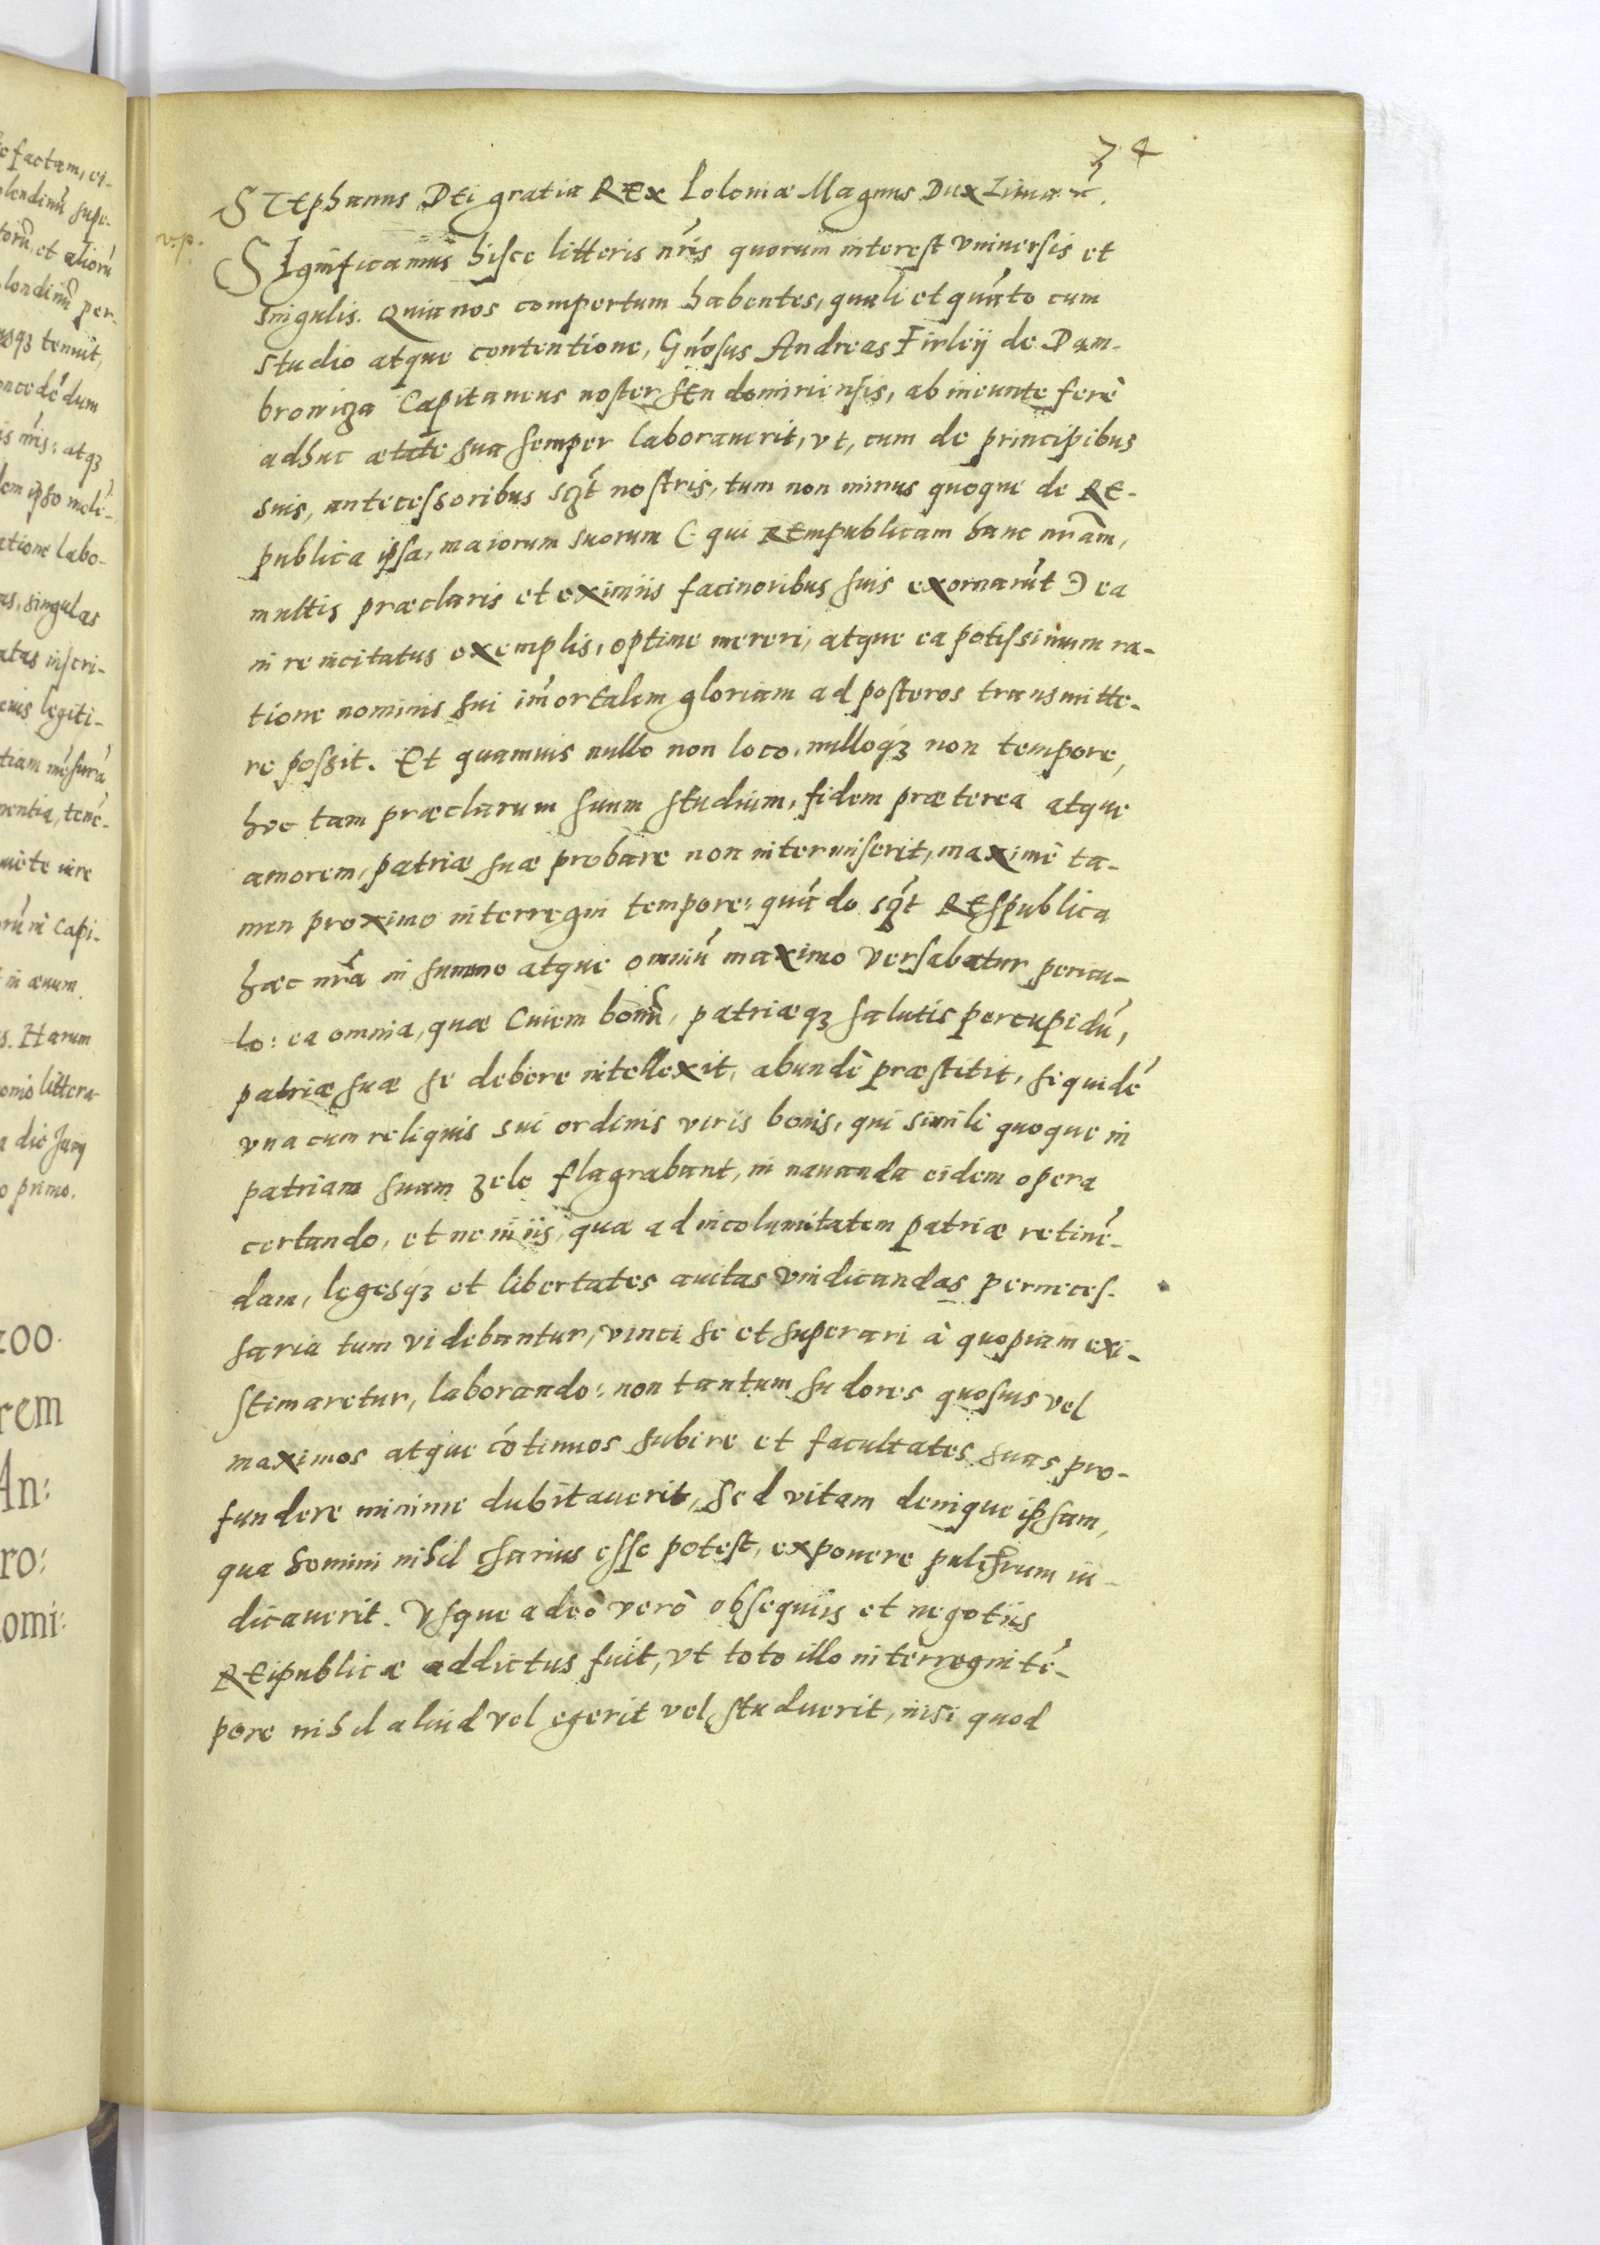 74
STEphanus DEi gratia REx Poloniæ Magnus Dux
v.p.
SIgnificamus hisce litteris nr̃is quorum interest vniuersis et
singulis. Quia nos compertum habentes, quali et quãto cum
studio atque contentione, Gñosus Andreas Firleÿ de Dam-
browiza Capitaneus noster Sendomiriensis, ab ineunte ferè
adhuc ætate sua semper laborauerit, vt, cum de principibus
suis, antecessoribus sc̃t nostris, tum non minus quoque de RE-
publica ipsa, maiorum suorum (qui REmpublicam hanc nr̃am,
multis præclaris et eximiis facinoribus suis exornarũt) ea
in re incitatus exemplis, optime mereri, atque ea potissimum ra-
tione nominis sui im̃ortalem gloriam ad posteros transmitte-
re possit. Et quamuis nullo non loco, nulloqꝫ non tempore,
hoc tam præclarum suum studium, fidem præterea atque
amorem, patriæ suæ probare non intermiserit, maximè ta-
men proximo interregni tempore: quãdo sc̃t REspublica
hæc nr̃a in summo atque omniũ maximo versabatur pericu-
lo: ea omnia, quæ Ciuem bonũ, patriæqꝫ salutis percupidũ,
patriæ suæ se debere intellexit, abundè præstitit, siquidẽ
vna cum reliquis sui ordinis viris bonis, qui simili quoque in
patriam suam zelo flagrabant, in nauanda eidem opera
certando, et ne in iis, quæ ad incolumitatem patriæ retinẽ-
dam, legesqꝫ et libertates auitas vindicandas perneces-
saria tum videbantur, vinci se et superari à quopiam exi-
stimaretur, laborando: non tantum sudores quosuis vel
maximos atque cõtinuos subire et facultates suas pro-
fundere minime dubitauerit, sed vitam denique ipsam,
qua homini nihil charius esse potest, exponere pulchrum iu-
dicauerit. Vsque adeò verò obsequiis et negotiis
REipublicæ addictus fuit, vt toto illo interregni tẽ-
pore nihil aliud vel egerit vel studuerit, nisi quod